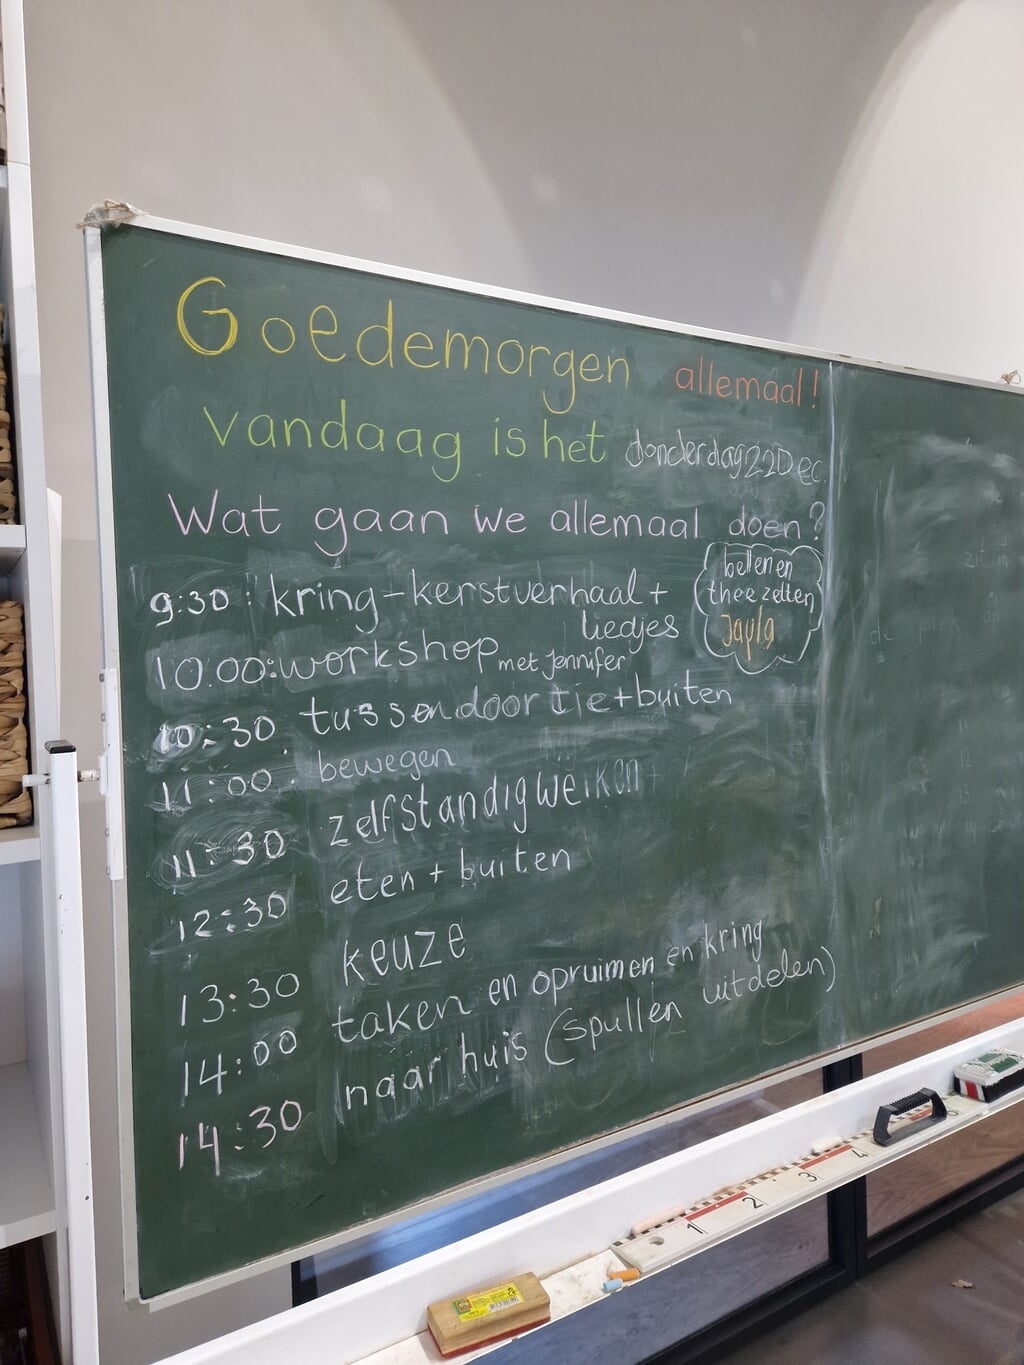 Goedemorgen allemaal!
vandaag is het donderdag 22 Dec.
Wat gaan we allemaal doen?
9:30: kring - kerstverhaal +
liedjes
bellen en
thee zetten
Jayla
10.00: workshop met Jennifer
10:30 tussendoortie + buiten
11:00 bewegen
11:30 zelfstandig werken
12:30 eten + buiten
13:30 keuze
14:00 taken en opruimen en kring
14:30 naar huis (spullen uitdelen)
1 2 3 4